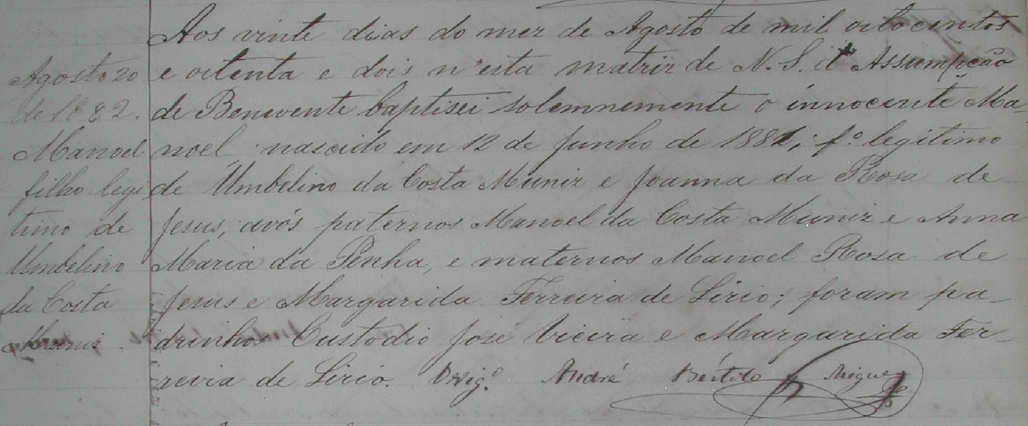 Aos vinte dias do mez de Agosto de mil oitocentos
e oitenta e dois n'esta matriz de N. S. d' Assumpção
de Benevente baptisei solemnemente o innocente Ma-
noel nascido em 12 de Junho de 1882; f.º legitimo
de Umbelino da Costa Muniz e Joanna da Rosa de
Jesus, avós paternos Manoel da Costa Muniz e Anna
Maria da Penha, e maternos Manoel Rosa de
Jesus e Margarida Ferreira de Lirio; foram pa-
drinhos Custodio José Vieira e Margarida Fer-
reira de Lirio. O Vig.º André
Agosto 20
de 1882.
Manoel
filho legi
timo de
Umbelino
da Costa
Muniz.